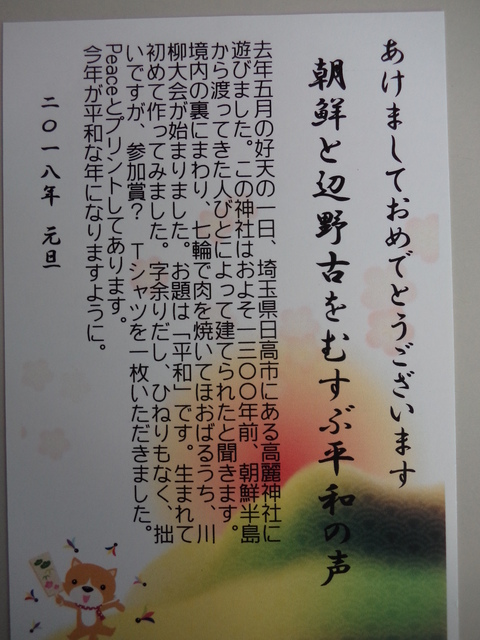 あけましておめでとうございます
朝鮮と辺野古をむすぶ平和の声
去年五月の好天の一日、埼玉県日高市にある高麗神社に
遊びました。この神社はおよそ一三〇〇年前、朝鮮半島
から渡ってきた人びとによって建てられたと聞きます。
境内の裏にまわり、七輪で肉を焼いてほおばるうち、川
柳大会が始まりました。お題は「平和」です。生まれて
初めて作ってみました。字余りだし、ひねりもなく、拙
いですが、参加賞？ Ｔシャツを一枚いただきました。
Peaceとプリントしてあります。
今年が平和な年になりますように。
二〇一八年 元旦